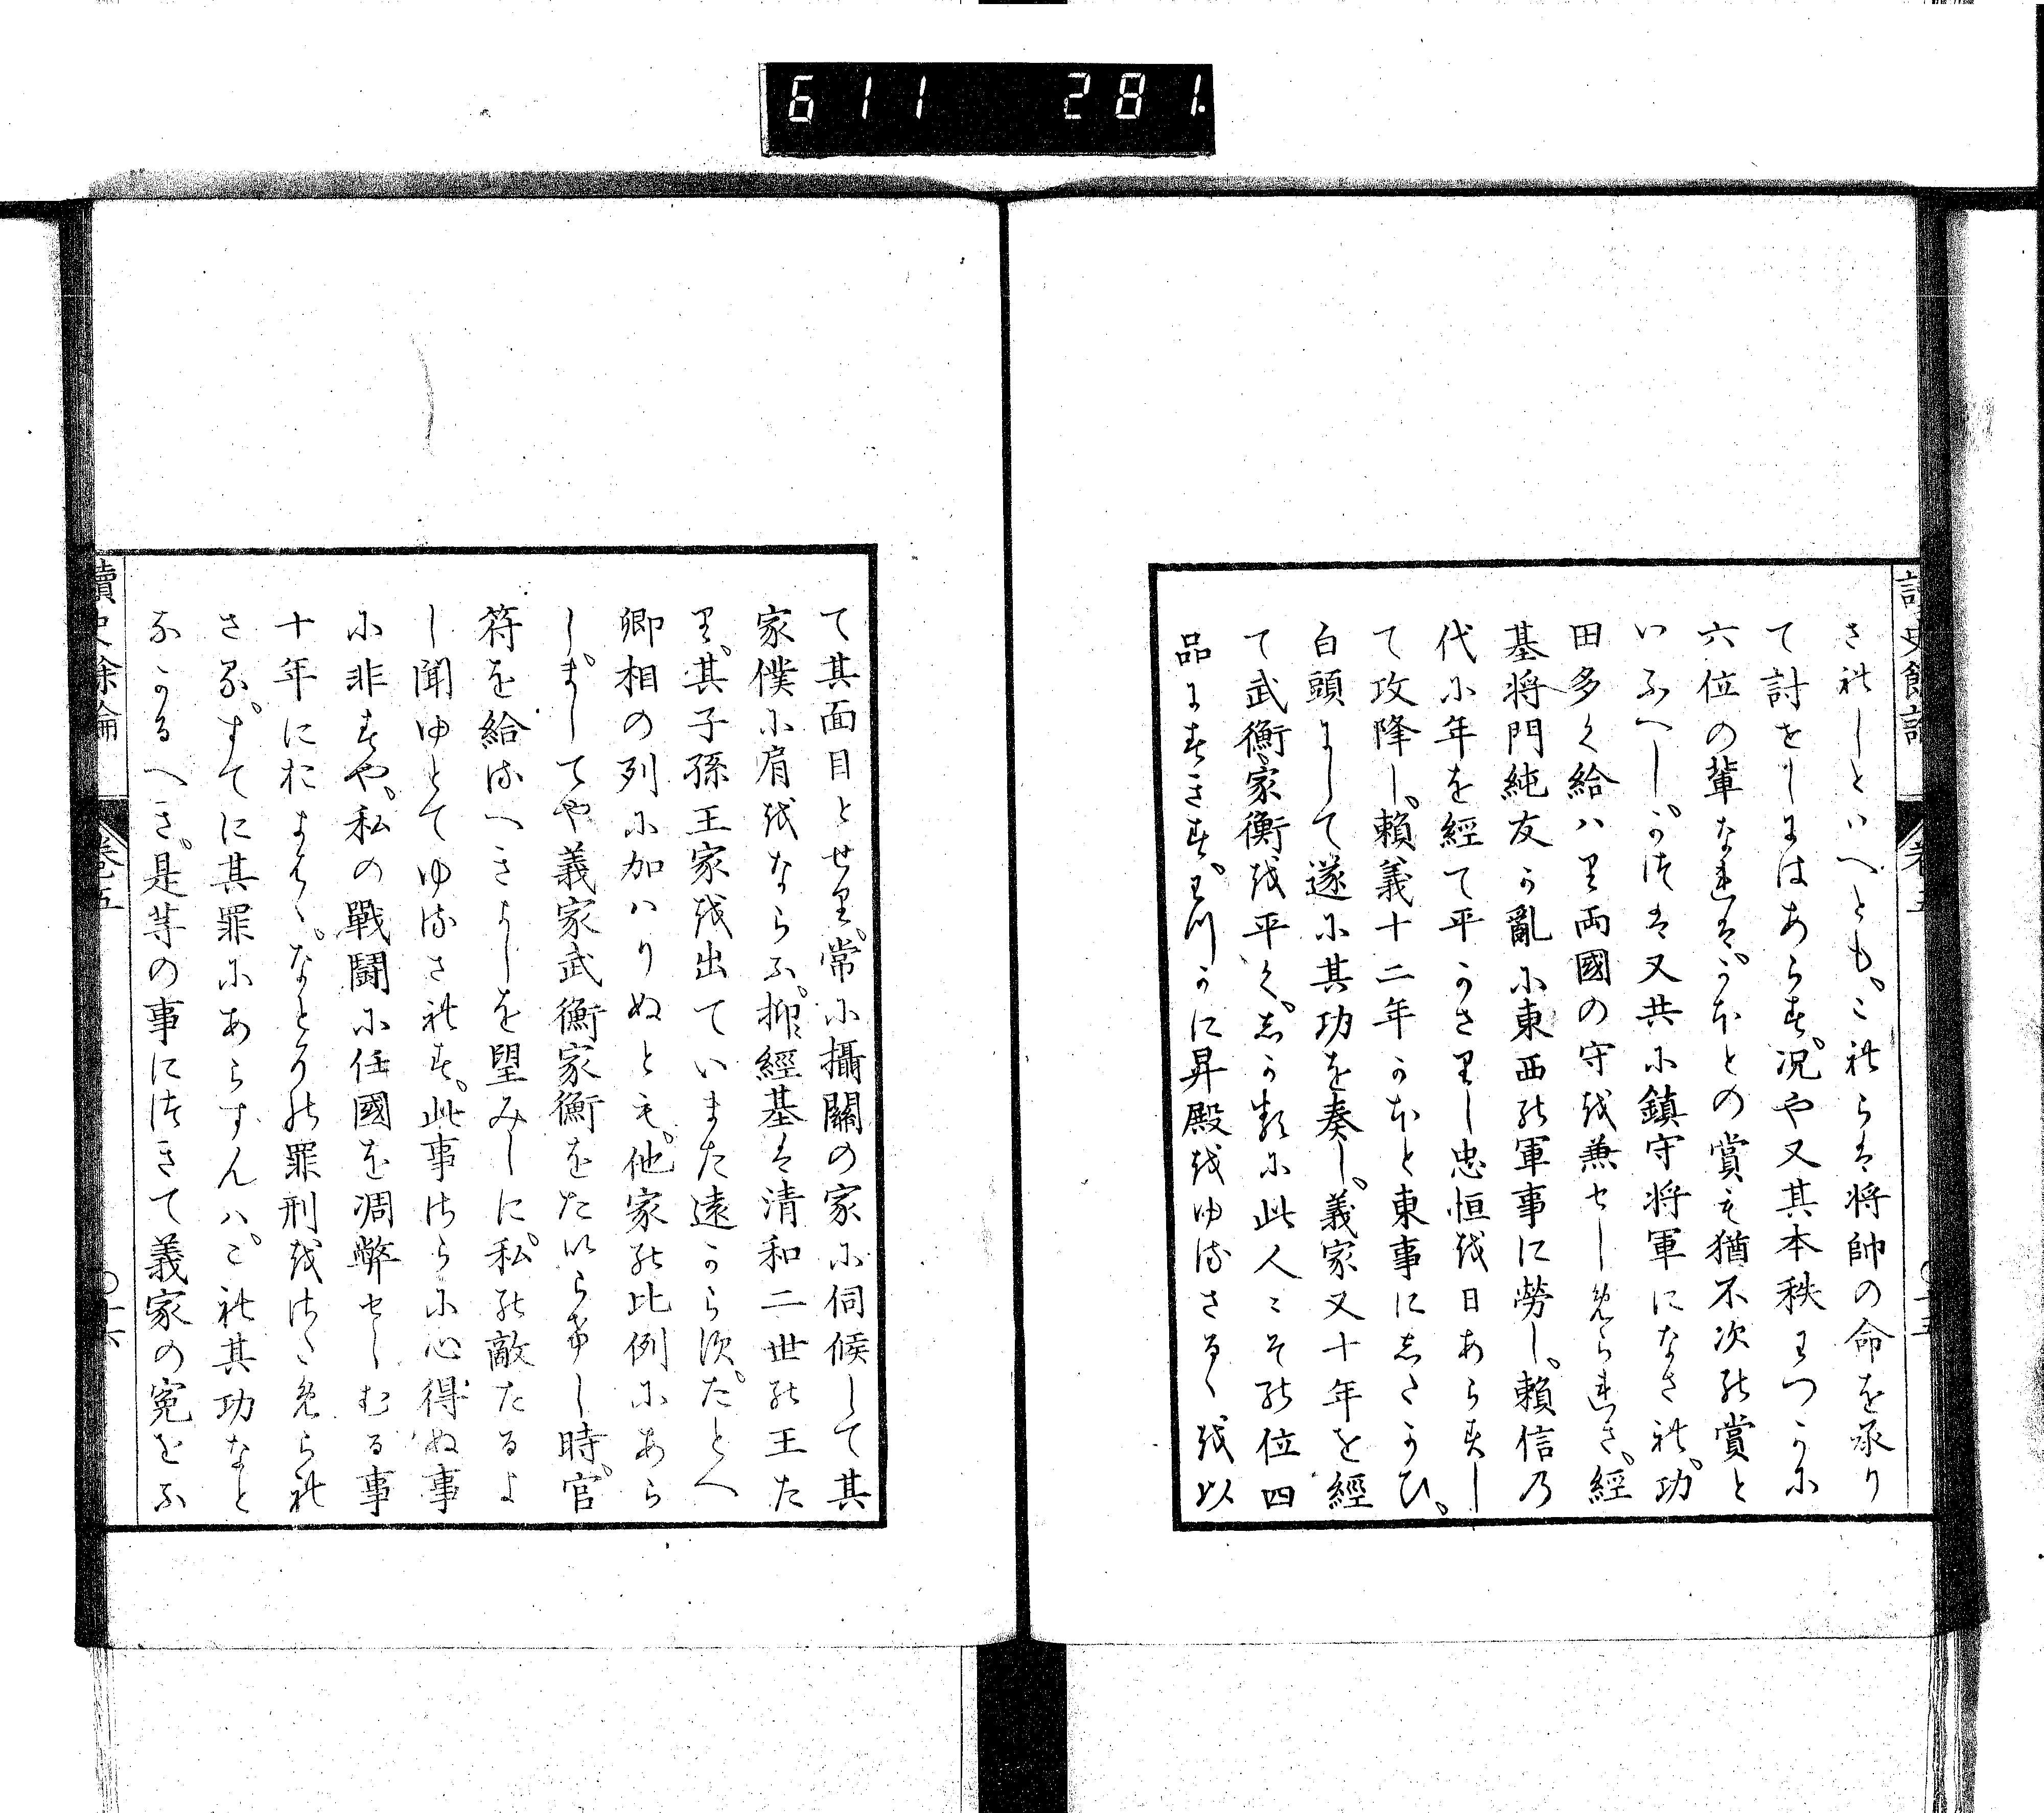 611 281
さ礼しといへとも。こ礼らは将帥の命を承り
て討をりしにはあらす。况や又其本秩わつかに
六位の輩なれは。かほとの賞も猶不次の賞と
いふへし。かつは又共に鎮守将軍になされ。功
田多く給ハり両國の守を兼せしめられき。經
基将門純友か亂に東西の軍事に勞し。頼信乃
代に年を經て平かさりし忠恒を日あらすし
て攻降し。頼義十二年かほと東事にしたかひ。
白頭にして遂に其功を奏し。義家又十年を經
て武衡家衡を平く。しかるに此人こその位四
品にすきす。わつかに昇殿をゆるさるゝを以
て其面目とせり。常に攝關の家に伺候して其
家僕に肩をならふ。抑經基は清和二世の王た
り。其子孫王家を出ていまた遠からす。たとへ
卿相の列に加ハりぬとも。他家の比例にあら
し。ましてや義家武衡家衡をたいらけし時。官
符を給るへきよしを望みしに。私の敵たるよ
し聞ゆとてゆるされす。此事さらに心得ぬ事
に非すや。私の戰鬪に任國を凋弊せしむる事
十年におよはゝ。なとかの罪刑をさためられ
さる。すてに其罪にあらすんハ。これ其功なと
なかるへき。是等の事につきて義家の寃をふ
讀史餘論 卷五